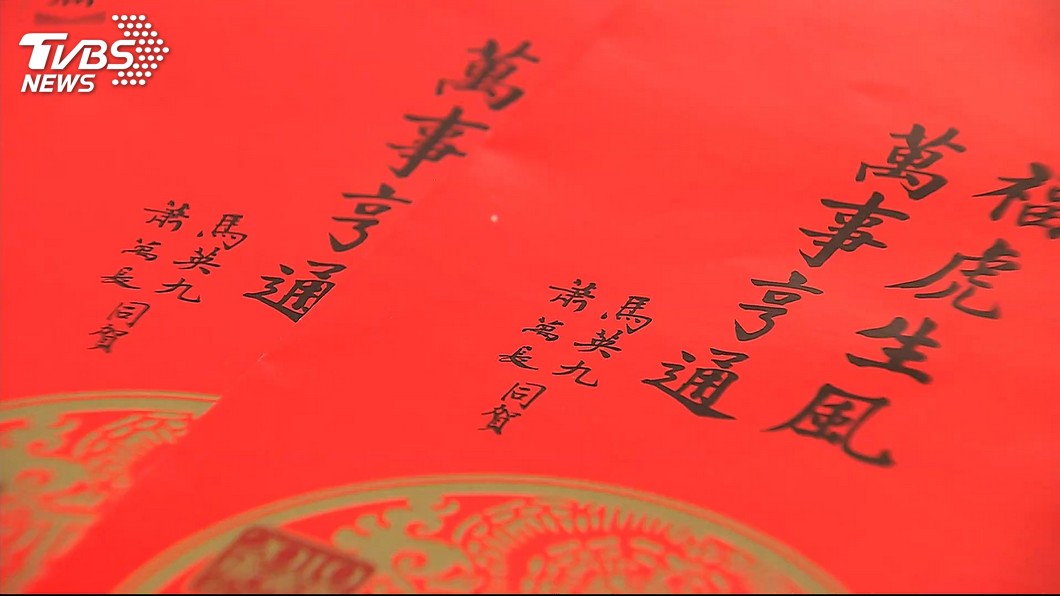 TVBS
NEWS
福虎生風
萬事亨通
馬英九
蕭萬長 同賀
萬事亨通
馬英九
蕭萬長 同賀